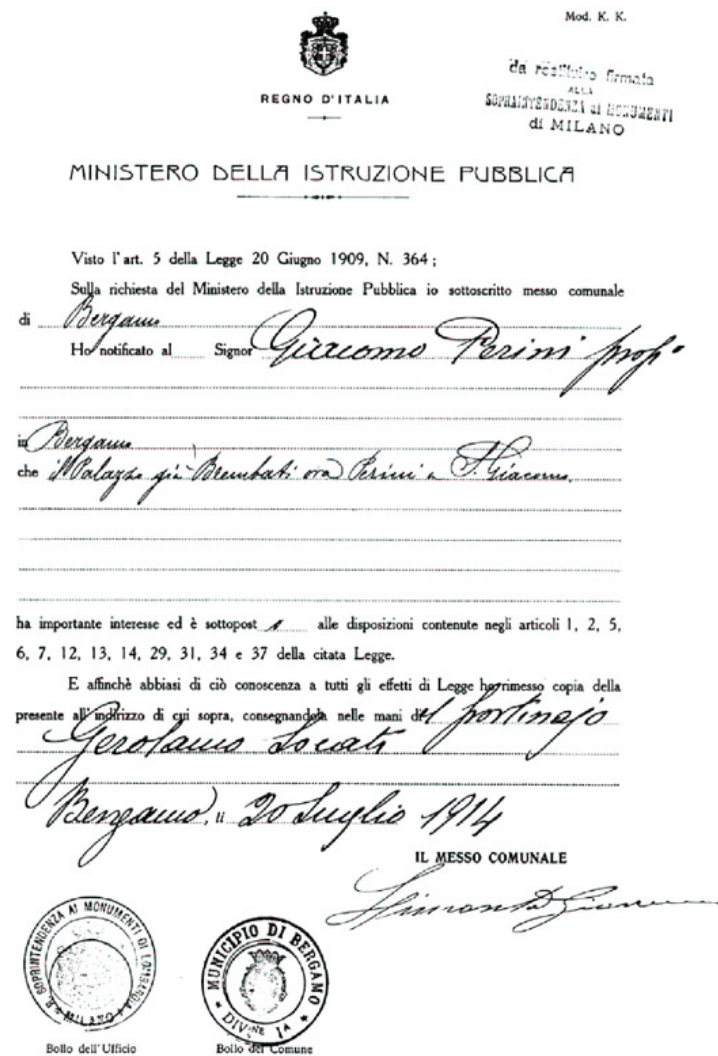 Mod. K. K.
da restituire firmata
ALLA
SOPRAINTENDENZA ai MONUMENTI
di MILANO
REGNO D'ITALIA
MINISTERO DELLA ISTRUZIONE PUBBLICA
Visto l'art. 5 della Legge 20 Giugno 1909, N. 364;
Sulla richiesta del Ministero della Istruzione Pubblica io sottoscritto messo comunale
di Bergamo
Ho notificato al Signor Giacomo Perini prop°
in Bergamo
che il Palazzo già Brembati ora Perini a S. Giacomo.
ha importante interesse ed è sottopost o alle disposizioni contenute negli articoli 1, 2, 5,
6, 7, 12, 13, 14, 29, 31, 34 e 37 della citata Legge.
E affinchè abbiasi di ciò conoscenza a tutti gli effetti di Legge ho rimesso copia della
presente all'indirizzo di cui sopra, consegnandola nelle mani del portinajo
Gerolamo Locati
Bergamo, li 20 Luglio 1914
IL MESSO COMUNALE
R. SOPRINTENDENZA AI MONUMENTI DI LOMBARDIA
MILANO
MUNICIPIO DI BERGAMO
DIV.NE 1A
Bollo dell'Ufficio
Bollo del Comune